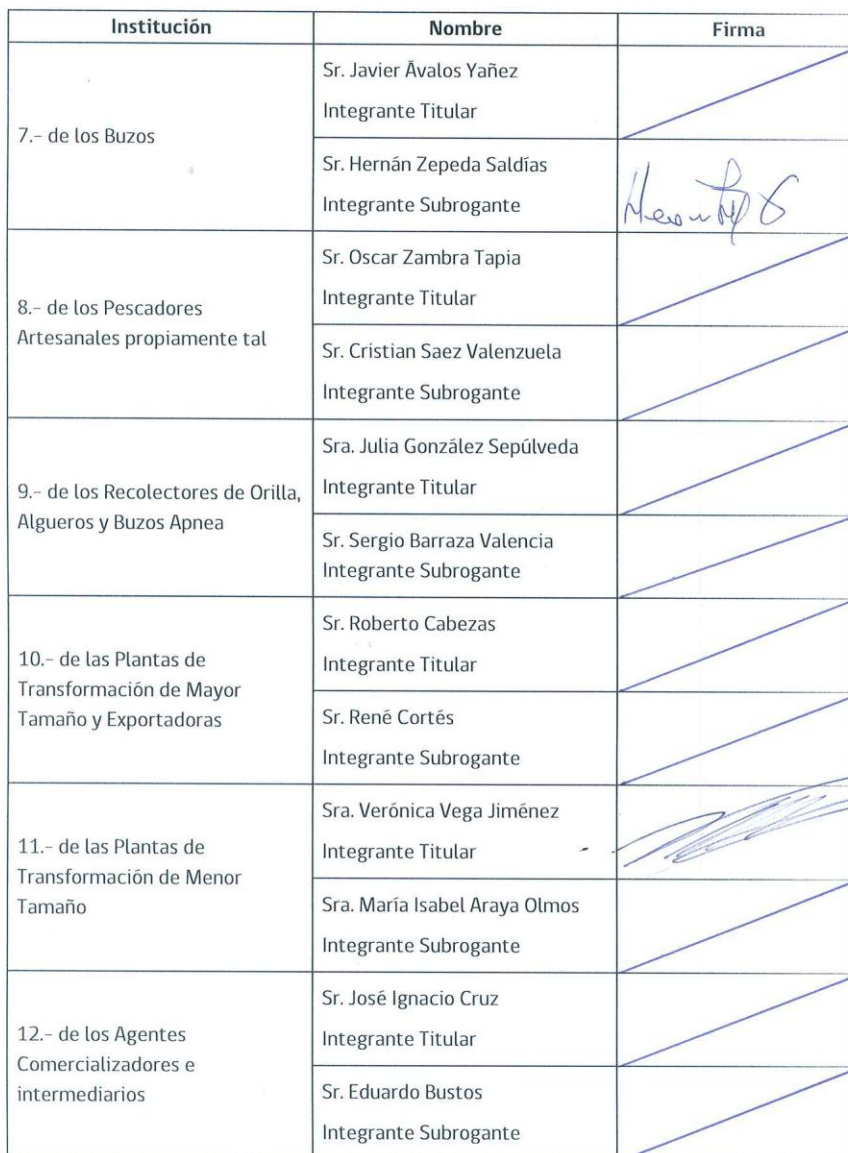 Institución Nombre Firma
7.- de los Buzos
Sr. Javier Ávalos Yañez
Integrante Titular
Sr. Hernán Zepeda Saldías
Integrante Subrogante
8.- de los Pescadores
Artesanales propiamente tal
Sr. Oscar Zambra Tapia
Integrante Titular
Sr. Cristian Saez Valenzuela
Integrante Subrogante
9.- de los Recolectores de Orilla,
Algueros y Buzos Apnea
Sra. Julia González Sepúlveda
Integrante Titular
Sr. Sergio Barraza Valencia
Integrante Subrogante
10.- de las Plantas de
Transformación de Mayor
Tamaño y Exportadoras
Sr. Roberto Cabezas
Integrante Titular
Sr. René Cortés
Integrante Subrogante
11.- de las Plantas de
Transformación de Menor
Tamaño
Sra. Verónica Vega Jiménez
Integrante Titular
Sra. María Isabel Araya Olmos
Integrante Subrogante
12.- de los Agentes
Comercializadores e
intermediarios
Sr. José Ignacio Cruz
Integrante Titular
Sr. Eduardo Bustos
Integrante Subrogante